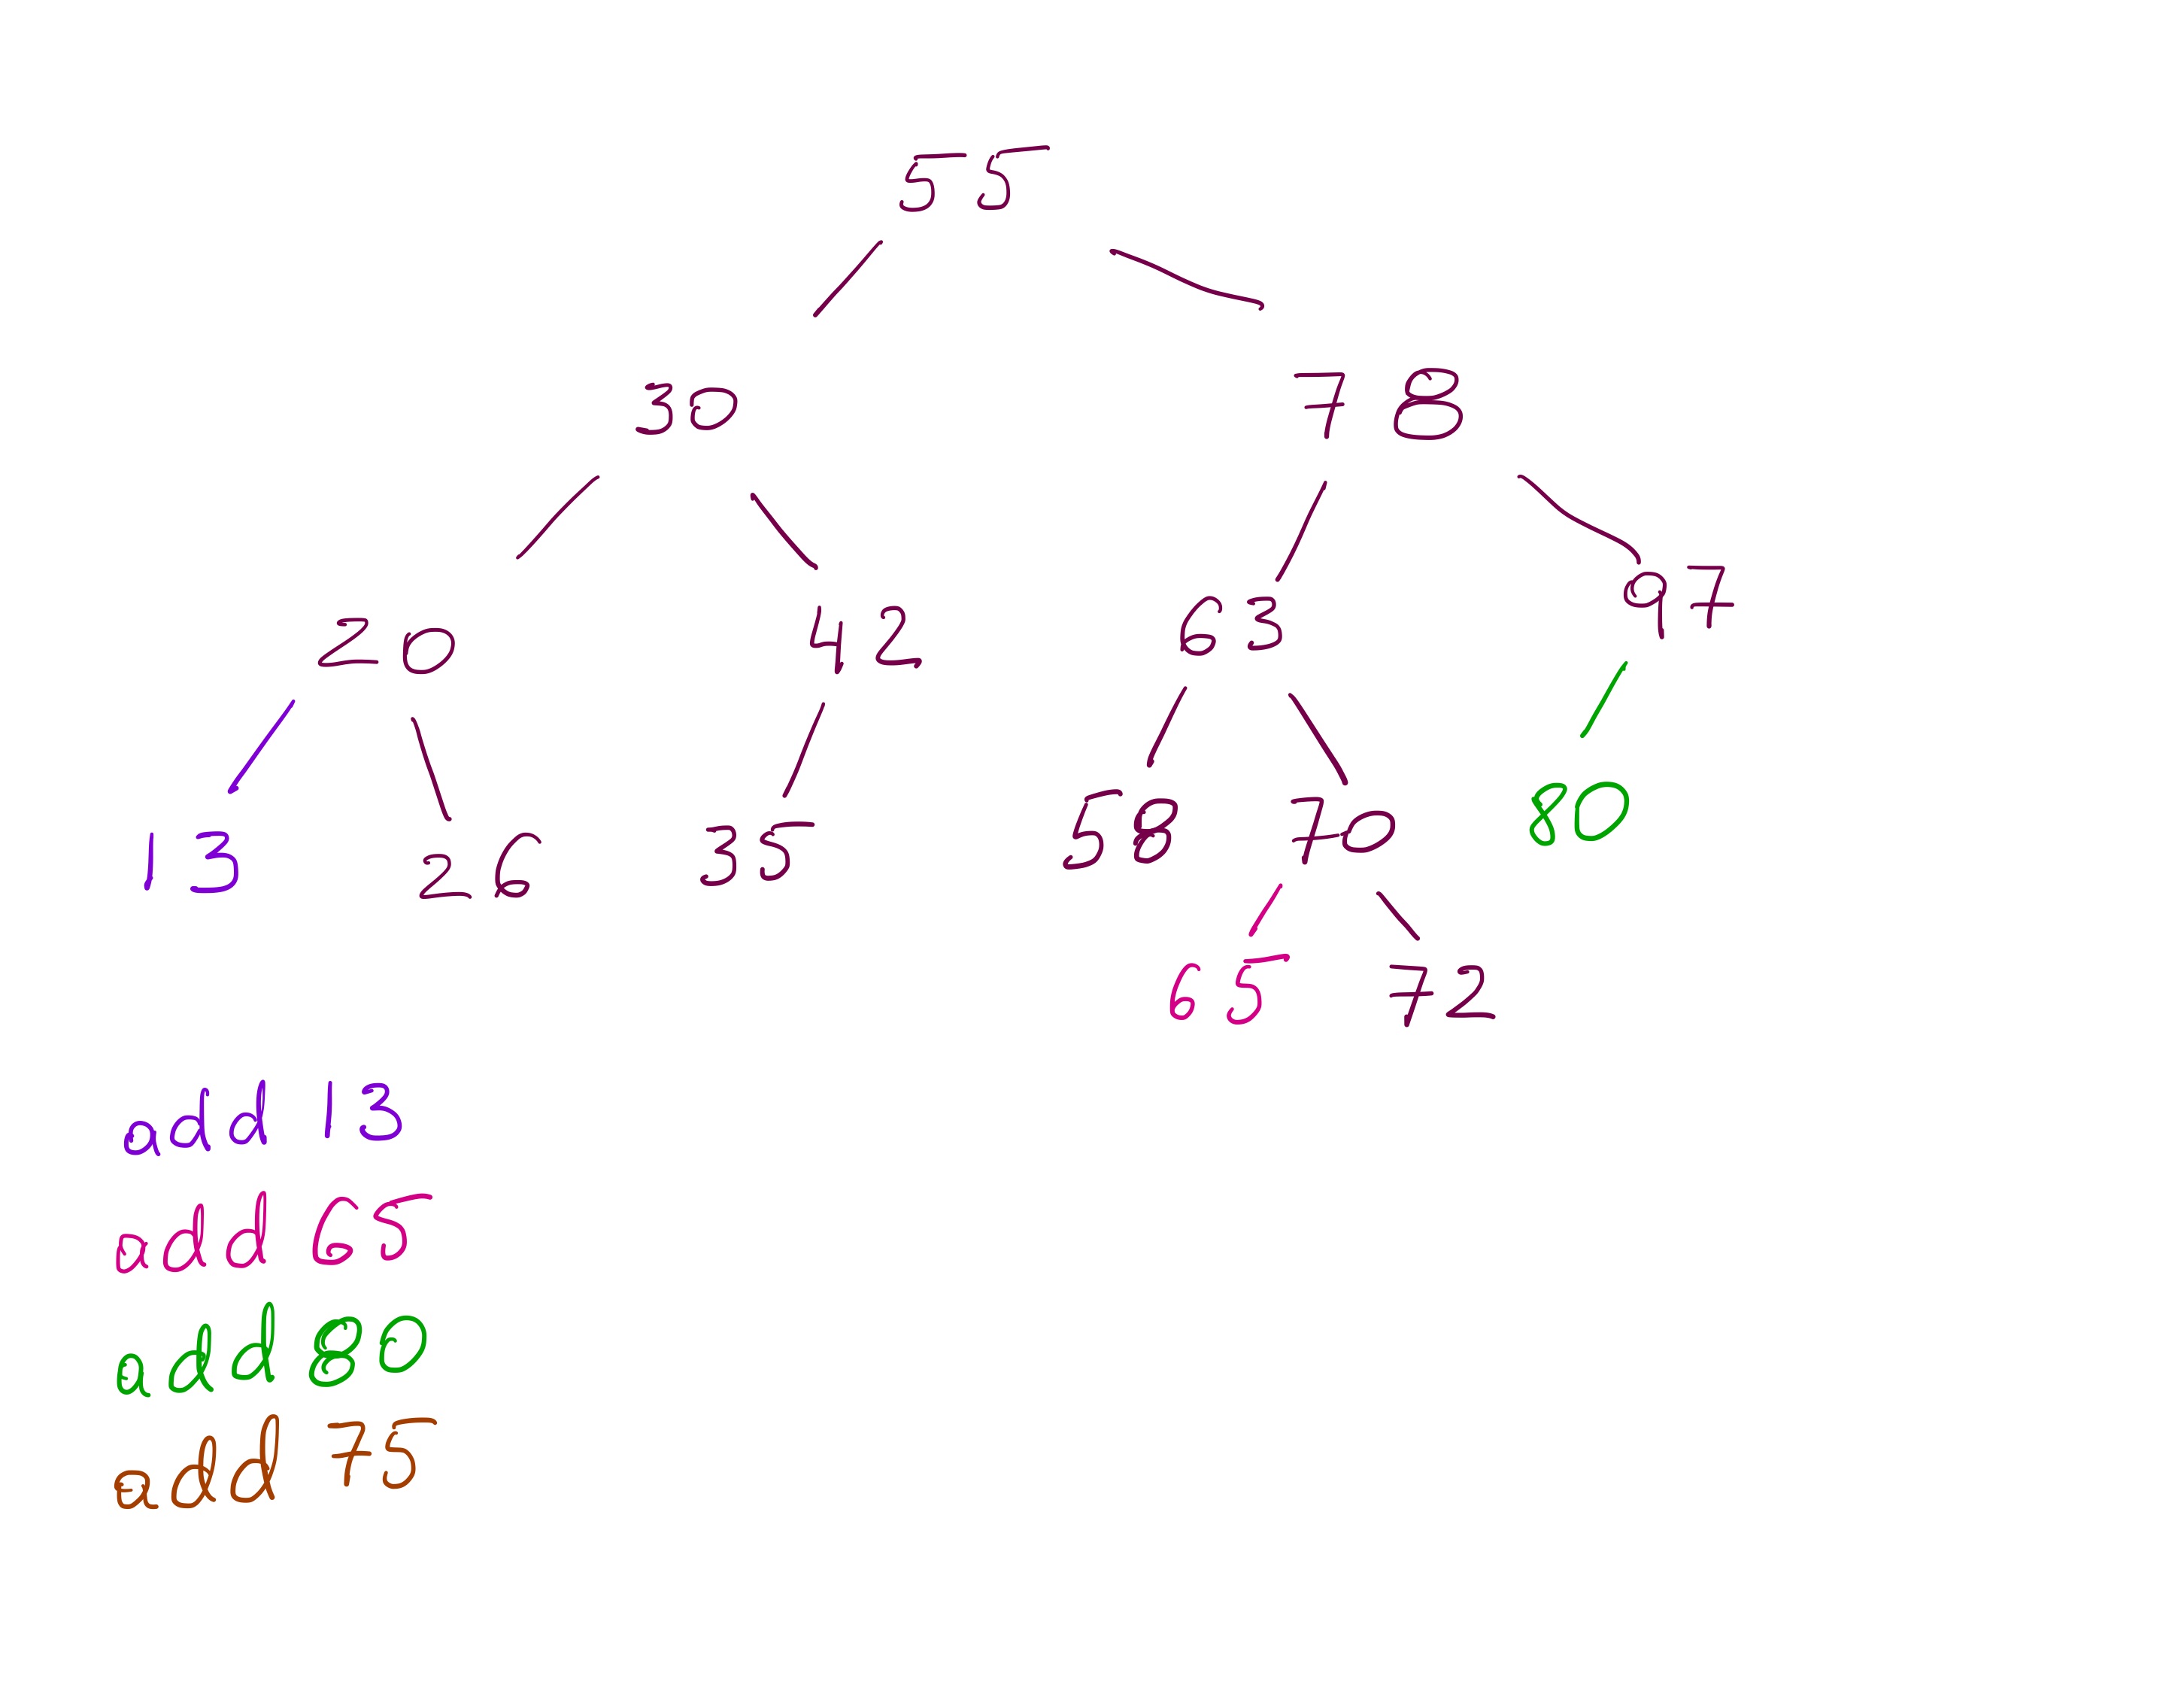 55
30 78
20 42 63 97
13 26 35 58 70 80
65 72
add 13
add 65
add 80
add 75